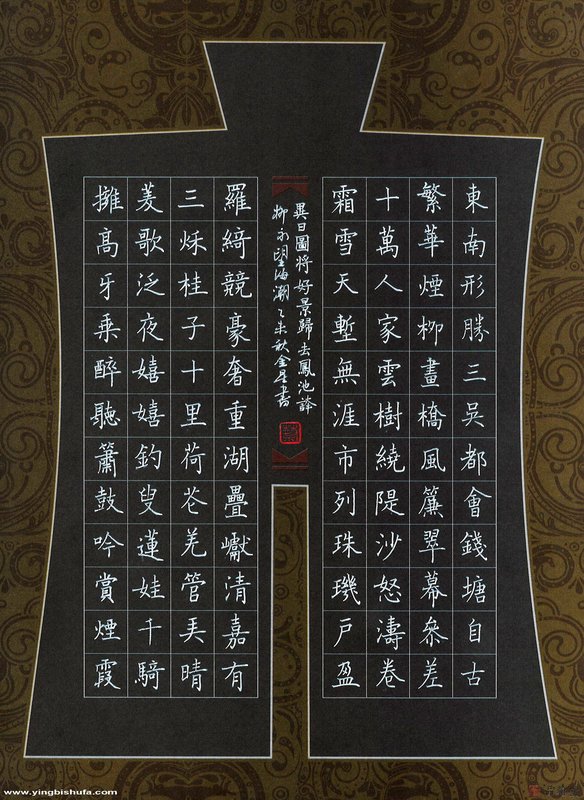 東南形勝三吳都會錢塘自古
繁華煙柳畫橋風簾翠幕參差
十萬人家雲樹繞隄沙怒濤卷
霜雪天塹無涯市列珠璣戶盈
羅綺競豪奢重湖疊巘清嘉有
三秌桂子十里荷花羌管弄晴
菱歌泛夜嬉嬉釣叟蓮娃千騎
擁高牙乘醉聽簫鼓吟賞煙霞
異日圖將好景歸去鳳池誇
柳永望海潮乙未秋金星書
www.yingbishufa.com